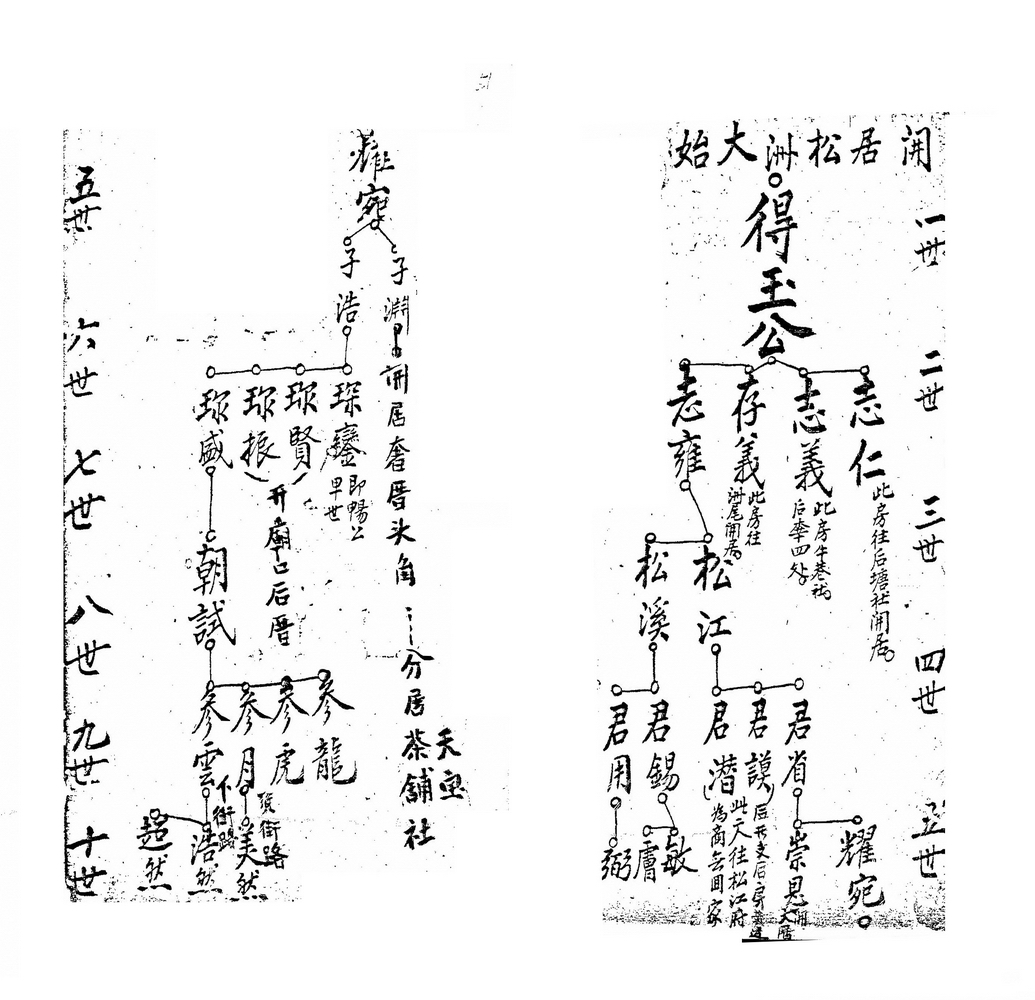 開居松洲大始
一世
二世
三世
四世
五世
得玉公
志仁
此房往后塘社開居
志義
此房牛巷社
存義
此房往
洲尾開居
志雍
松江
松溪
君省
君謨
君潛
此人往松江府
為商無回家
君錫
君用
耀宛
崇恩
開大厝
敏
膚
弼
五世
六世
七世
八世
九世
十世
耀宛
子淵
開居奢厝头角
分居茶舖社
子浩
琛鑾
即暢公
早世
珎賢
珎振
开廟口后厝
珎盛
朝試
參龍
參虎
參月
參雲
頂街路
下街路
美然
浩然
超然